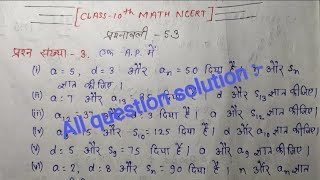 [CLASS-10th MATH NCERT]
प्रश्नावली - 5.3
प्रश्न संख्या - 3. एक A.P. में
(i) a = 5, d = 3 और an = 50 दिया है। n और Sn
ज्ञात कीजिए।
(ii) a = 7 और a13 = 35 दिया है। d और S13 ज्ञात कीजिए।
(iii) a12 = 37 और d = 3 दिया है। a और S12 ज्ञात कीजिए।
15 और S10 = 125 दिया है। d और a10 ज्ञात कीजिए।
(v) d = 5 और S9 = 75 दिया है। a और a9 ज्ञात कीजिए।
(vi) a = 2, d = 8 और Sn = 90 दिया है। n और an ज्ञात
All question solution